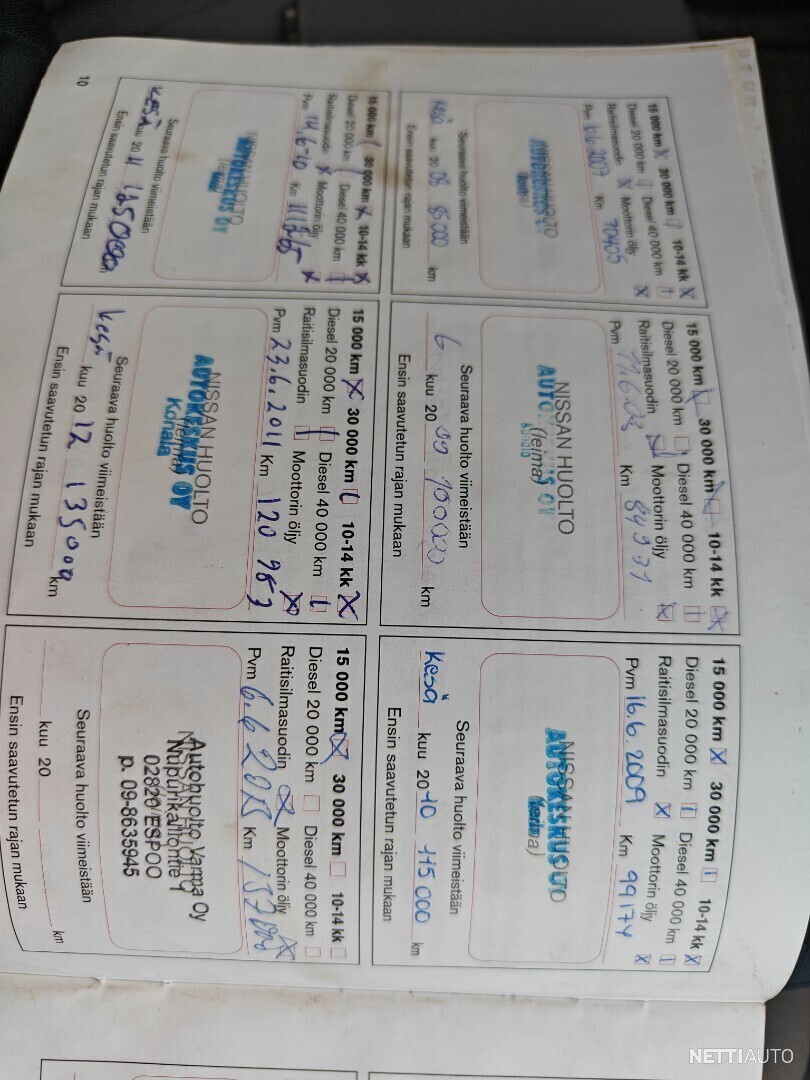 15 000 km X 30 000 km 10-14 kk X
Diesel 20 000 km Diesel 40 000 km
Raitisilmasuodin X Moottorin öljy X
Pvm 2007 Km 70405
NISSAN HUOLTO
AUTOKESKUS OY
(leima)
Seuraava huolto viimeistään
kuu 20 08 85000 km
Ensin saavutetun rajan mukaan
15 000 km X 30 000 km X 10-14 kk X
Diesel 20 000 km Diesel 40 000 km
Raitisilmasuodin X Moottorin öljy X
Pvm 11.6.08 Km 84931
NISSAN HUOLTO
(leima)
Seuraava huolto viimeistään
6 kuu 20 09 100000 km
Ensin saavutetun rajan mukaan
15 000 km X 30 000 km 10-14 kk X
Diesel 20 000 km Diesel 40 000 km
Raitisilmasuodin X Moottorin öljy X
Pvm 16.6.2009 Km 99174
NISSAN HUOLTO
AUTOKESKUS OY
(leima)
Seuraava huolto viimeistään
Kesä kuu 20 10 115000 km
Ensin saavutetun rajan mukaan
15 000 km 30 000 km X 10-14 kk X
Diesel 20 000 km Diesel 40 000 km
Raitisilmasuodin X Moottorin öljy X
Pvm 14.6-10 Km
NISSAN HUOLTO
AUTOKESKUS OY
Seuraava huolto viimeistään
Kesä kuu 20 11 125000 km
Ensin saavutetun rajan mukaan
15 000 km X 30 000 km 10-14 kk X
Diesel 20 000 km Diesel 40 000 km
Raitisilmasuodin Moottorin öljy X
Pvm 23.6.2011 Km 120 983
NISSAN HUOLTO
AUTOKESKUS OY
(leima)
Konala
Seuraava huolto viimeistään
Kesä kuu 20 12 135000 km
Ensin saavutetun rajan mukaan
15 000 km X 30 000 km 10-14 kk
Diesel 20 000 km Diesel 40 000 km
Raitisilmasuodin X Moottorin öljy X
Pvm 6.6 Km 137000
NISSAN HUOLTO
Autohuolto Varma Oy
02820 ESPOO
p. 09-8635945
Seuraava huolto viimeistään
kuu 20 km
Ensin saavutetun rajan mukaan
10
NETTIAUTO